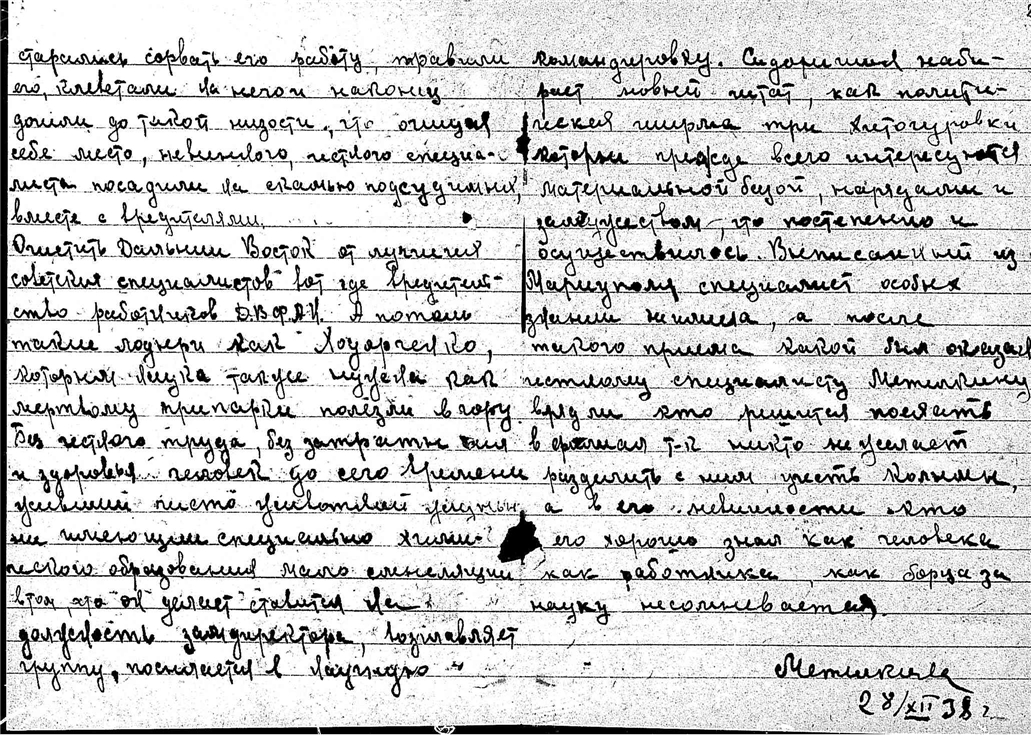 старались сорвать его работу, травили
его, клеветали на него и наконец
дошли до такой низости, что очищая
себе место, невинного, честного специа-
листа посадили на скамью подсудимых,
вместе с вредителями.
Очистить Дальний Восток от лучших
советских специалистов вот где вредитель-
ство работников ДВФАН. А потому
такие лодыри как Ходорченко,
которым наука также нужна как
мертвому припарки полезли в гору.
Без честного труда, без затраты сил
и здоровья человек до сего времени
живший чисто животной жизнью
не имеющий специально химиче-
ческого образования мало смыслящий
в том, что он делает ставится на
должность замдиректора, возглавляет
группу, посылается в научную
командировку. Сидоришин наби-
рает новый штат, как полити-
ческая ширма три хетогуровки
которы прежде всего интересуются
материальной базой, нарядами и
замужеством, что постепенно и
осуществилось. Выписанный из
Мариуполя специалист особых
знаний не имела, а после
такого приема какой был оказан
честному специалисту Метелкину
врядли кто решится поехать
в филиал т-к никто не желает
разделить с ним участь Колымы,
а в его невинности кто
его хорошо знал как человека
как работника, как борца за
науку несомневается.
Метелкина
28/XII 38 г